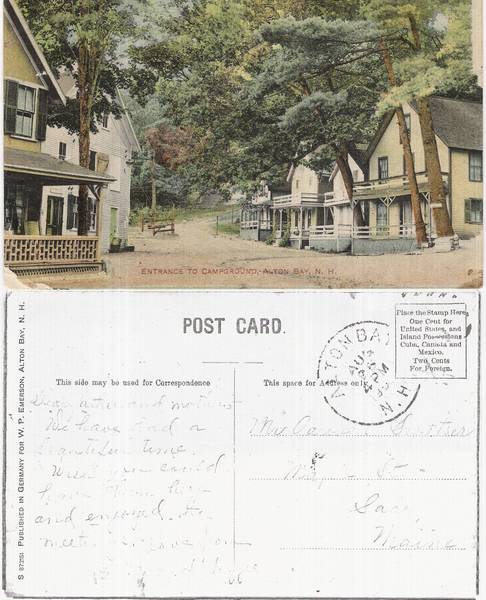 ENTRANCE TO CAMPGROUND, ALTON BAY, N. H.
S 87251 PUBLISHED IN GERMANY FOR W. P. EMERSON, ALTON BAY, N. H.
POST CARD.
Place the Stamp Here
One Cent for
United States, and
Island Possessions
Cuba, Canada and
Mexico.
Two Cents
For Foreign.
ALTON BAY
AUG
4 PM
N.H.
This side may be used for Correspondence
This space for Address only
Dear and mother
We have had a
beautiful time.
Wish you could
have been here
and enjoyed the
meeting
Saco
Maine
St